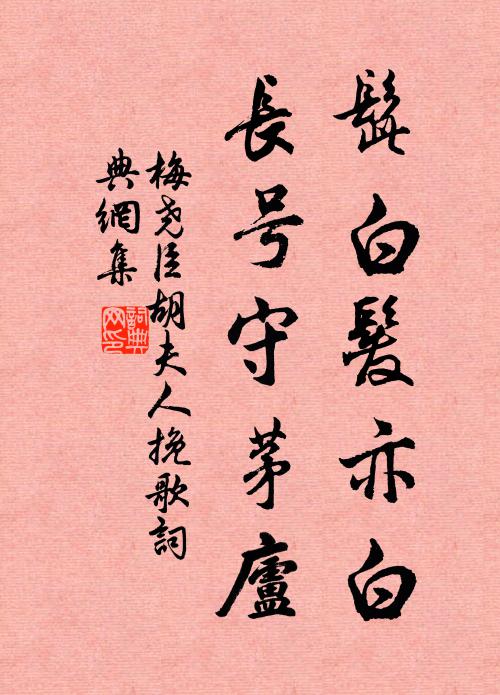 髭白髮亦白
長号守茅廬
梅尧臣胡夫人挽歌詞
典網集
詞典网印